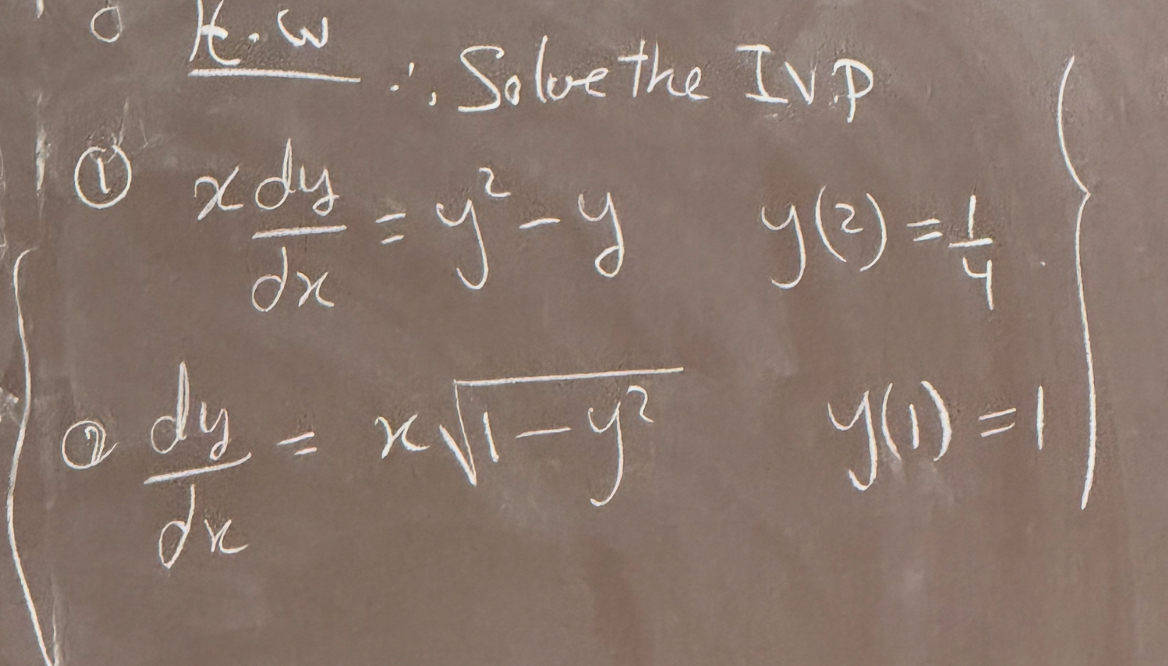 H.W
∴ Solve the IVP
① x dy/dx = y² - y y(2) = 1/4
② dy/dx = x√(1 - y²) y(1) = 1